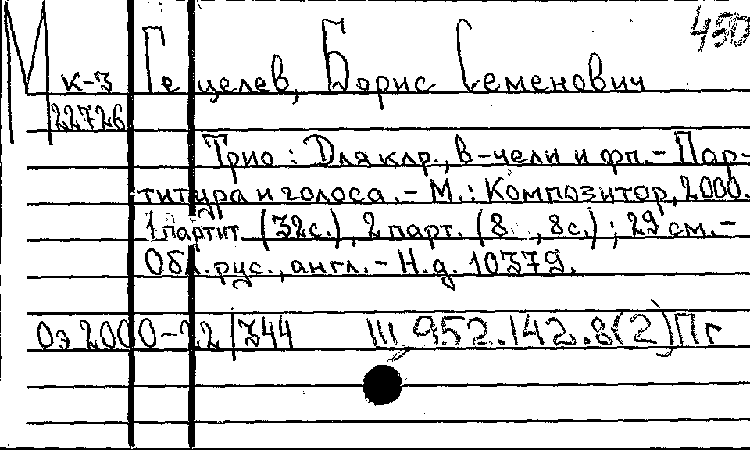 450
М к-3 Гецелев, Борис Семенович
22726
Трио: Для клр., в-чели и фп. - Пар-
титура и голоса. - М.: Композитор, 2000.
1 партит. (32с.), 2 парт. (8 , 8с.); 29 см. -
Обл. рус., англ. - Н.д. 10379.
Оэ 2000-22/344 Ш 952.142.8(2)Пг